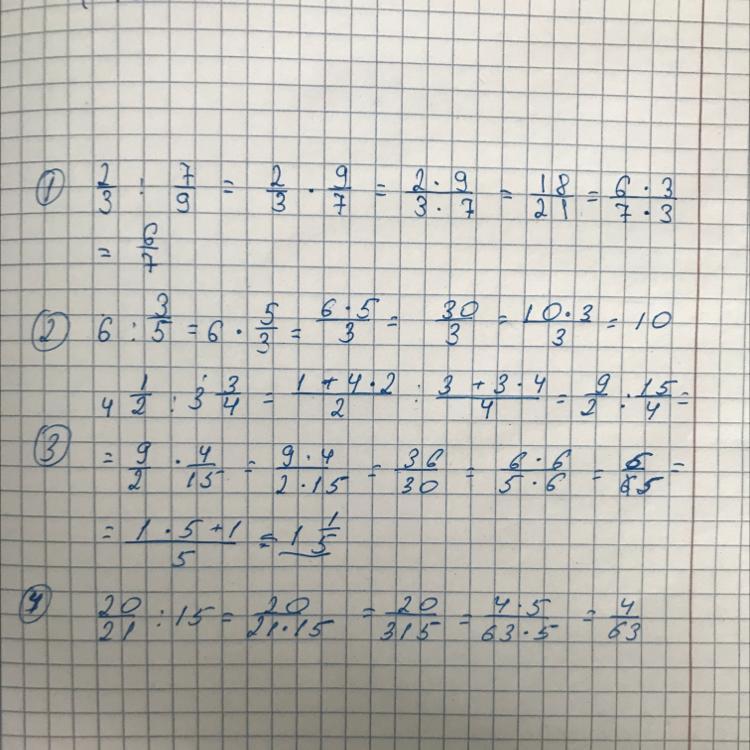 ① 2/3 : 7/9 = 2/3 · 9/7 = 2·9/3·7 = 18/21 = 6·3/7·3
= 6/7
② 6 : 3/5 = 6 · 5/3 = 6·5/3 = 30/3 = 10·3/3 = 10
③ 4 1/2 : 3 3/4 = 1+4·2/2 : 3+3·4/4 = 9/2 : 15/4 =
= 9/2 · 4/15 = 9·4/2·15 = 36/30 = 6·6/5·6 = 6/5 =
= 1·5+1/5 = 1 1/5
④ 20/21 : 15 = 20/21·15 = 20/315 = 4·5/63·5 = 4/63